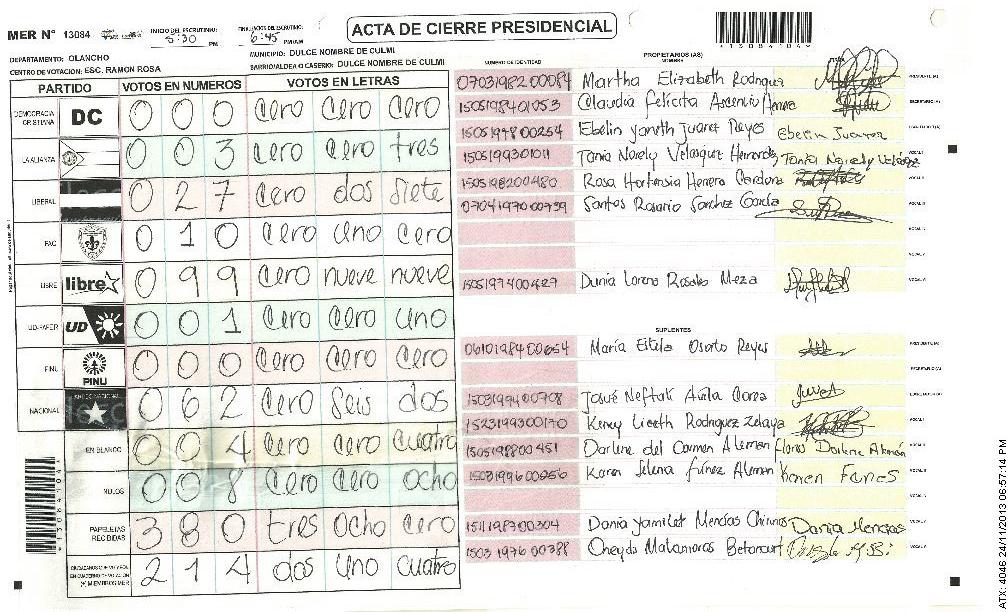 ACTA DE CIERRE PRESIDENCIAL
MER N° 13084
INICIO DEL ESCRUTINIO: 5:30 PM
FINALIZACION DEL ESCRUTINIO: 6:45 PM/AM
*13084104*
DEPARTAMENTO: OLANCHO
MUNICIPIO: DULCE NOMBRE DE CULMI
CENTRO DE VOTACION: ESC. RAMON ROSA
BARRIO/ALDEA O CASERIO: DULCE NOMBRE DE CULMI
PARTIDO VOTOS EN NUMEROS VOTOS EN LETRAS
DEMOCRACIA CRISTIANA DC 0 0 0 Cero Cero Cero
LA ALIANZA 0 0 3 Cero Cero tres
LIBERAL 0 2 7 Cero dos Siete
PAC 0 1 0 Cero Uno Cero
LIBRE libre 0 9 9 Cero nueve nueve
UD-FAPER UD 0 0 1 Cero Cero Uno
PINU PINU 0 0 0 Cero Cero Cero
NACIONAL 0 6 2 Cero Seis dos
EN BLANCO 0 0 4 Cero Cero Cuatro
NULOS 0 0 8 Cero Cero Ocho
PAPELETAS RECIBIDAS 3 8 0 tres Ocho Cero
2 1 4 dos Uno Cuatro
*13084104*
NUMERO DE IDENTIDAD PROPIETARIOS (AS)
0703198200084 Martha Elizabeth Rodriguez PRESIDENTE (A)
1505198401053 Claudia Felicita Ascencio Herrera SECRETARIO (A)
1505197800254 Ebelin Yaneth Juarez Reyes Ebelin Juarez ESCRUTADOR (A)
1505199301011 Tania Narely Velasquez Hernandez Tania Narely Velasquez VOCAL I
1505198200480 Rosa Hortensia Herrera Cardona VOCAL II
0704197000739 Santos Rosario Sanchez Garcia VOCAL III
VOCAL IV
VOCAL V
1505197400427 Dunia Lorena Rosales Meza VOCAL VI
SUPLENTES
0610198400654 María Estela Osorto Reyes PRESIDENTE (A)
SECRETARIO (A)
1503199400708 Josué Neftali Avila ESCRUTADOR (A)
1523199300170 Kency Lizeth Rodriguez Zelaya VOCAL I
1505198800451 Darline del Carmen Aleman Flores Darlene Alemán VOCAL II
1503199600256 Karen Jelena Funez Aleman Karen Funes VOCAL III
VOCAL IV
1511198300304 Dania Yamilet Mencias Chirinos Dania Mencias VOCAL V
1503197600388 Oneyda Matamoros Betancourt VOCAL VI
ATX: 4046 24/11/2013 06:57:14 PM